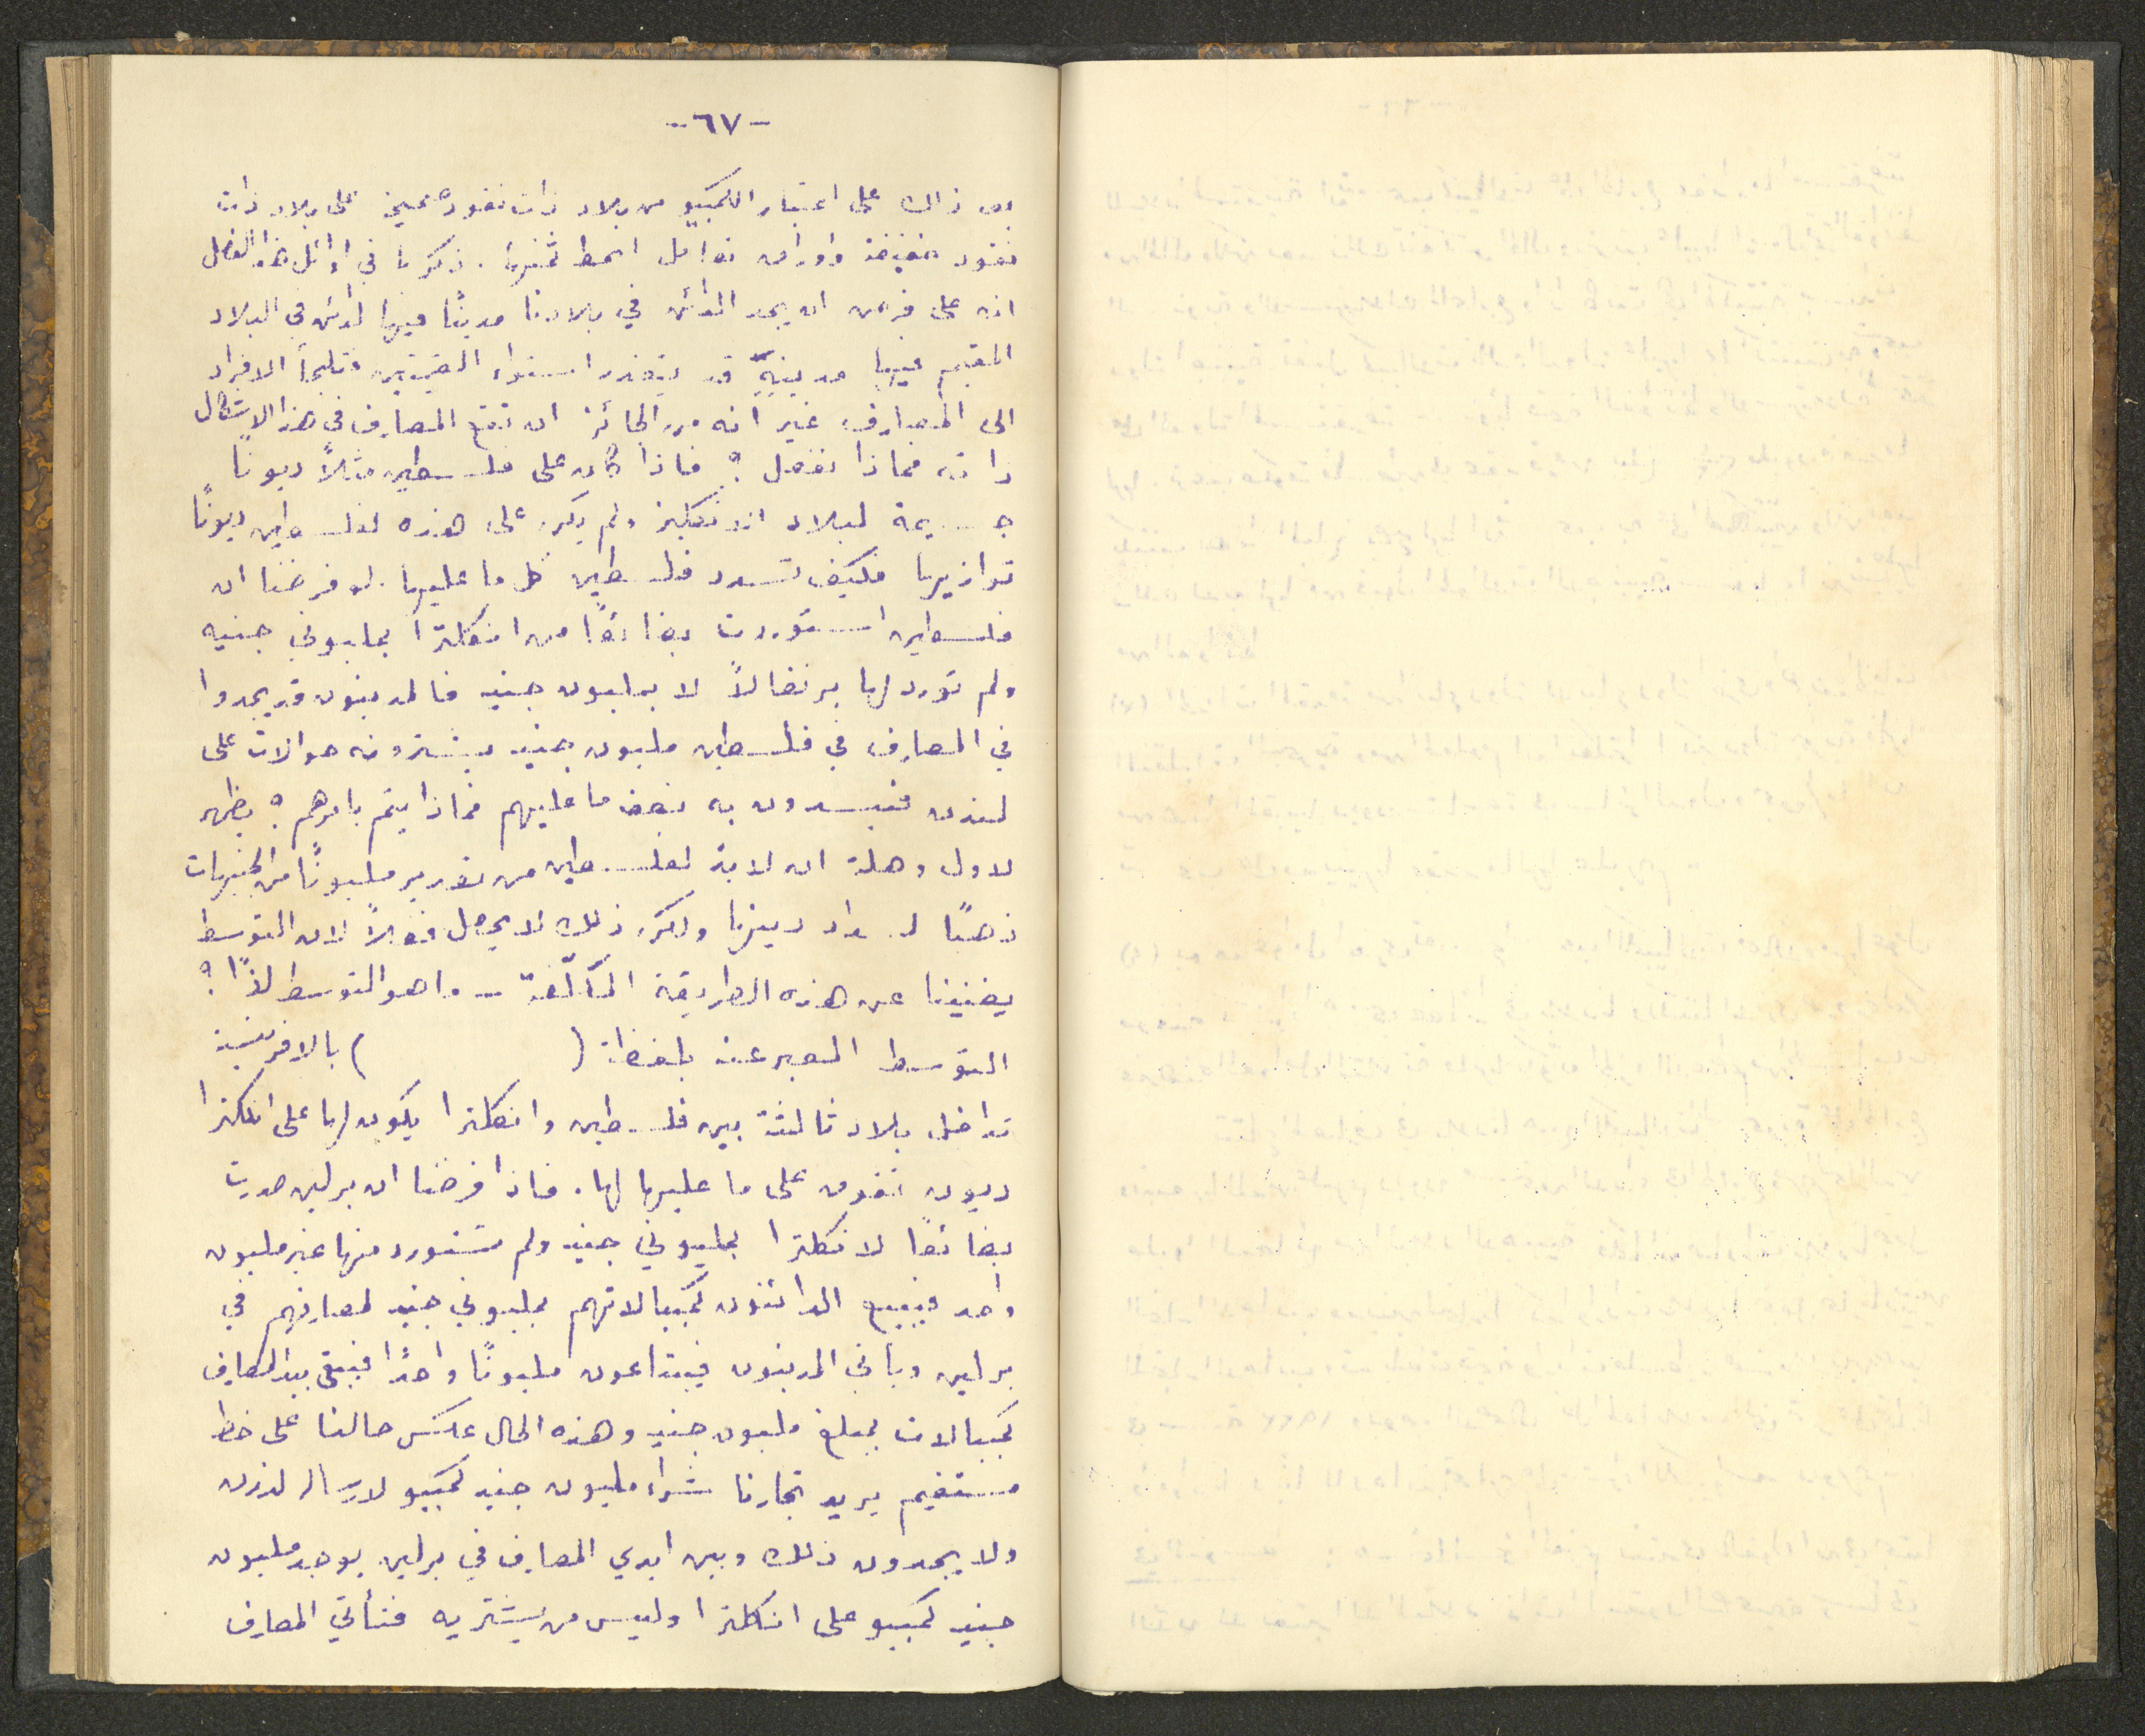 -٦٧-
ذلك على اعتبار الكمبيو من بلاد ذات نقود صحيحة على بلاد ذات
نقود مخفضة واوراق تعامل انحط ثمنها. ذكرنا في اوائل هذا الفصل
انه على فرض ان يجد الدائن في بلادنا مدينًا فيها لدائن في البلاد
المقيم فيها مدينهِ قد يتعذر استواء القيمتين فتلجأ الافراد
الى المصارف غير انه من الجائز ان تقع المصارف في هذا الاشكال
ذاته فماذا نفعل ؟ فاذا كان على فلسطين مثلاً ديونًا
جسيمة لبلاد الانكليز ولم يكن على هذه لفلسطين ديونًا
توازيها فكيف تسدد فلسطين كل ما عليها. لو فرضنا ان
فلسطين استوردت بضائعًا من انكلترا بمليوني جنيه
ولم تورد لها برتقالاً لا بمليون جنيه فالمدينون قد يجدوا
في المصارف في فلسطين مليون جنيه يشترونه حوالات على
لندن فيسدون به نصف ما عليهم فماذا يتم بامرهم ؟ يظهر
لاول وهلة ان لابد لفلسطين من تصدير مليونًا من الجنيهات
ذهبًا لسداد دينها ولكن ذلك لا يحصل فعلاً لان التوسط
يغنينا عن هذه الطريقة المكلّفة - ما هو التوسط اذًا ؟
التوسط المعبر عنه بلفظة ( ) بالافرنسية
تداخل بلاد ثالثة بين فلسطين وانكلترا يكون لها على انكلترا
ديون تفوق على ما عليها لها. فاذا فرضنا ان برلين صدرت
بضائعًا لانكلترا بمليوني جنيه ولم تستورد منها غير مليون
واحد فيبيع الدائنون كمبيالاتهم بمليوني جنيه لمصارفهم في
برلين ويأتي المدينون فيبتاعون مليونًا واحدًا فيبقى بيد المصارف
كمبيالات بمبلغ مليون جنيه وهذه الحال عكس حالنا على خط
مستقيم يريد تجارنا شراء مليون جنيه كمبيو لارساله لندن
ولا يجدون ذلك وبين ايدي المصارف في برلين يوجد مليون
جنيه كمبيو على انكلترا وليس من يشتريه فتأتي المصارف